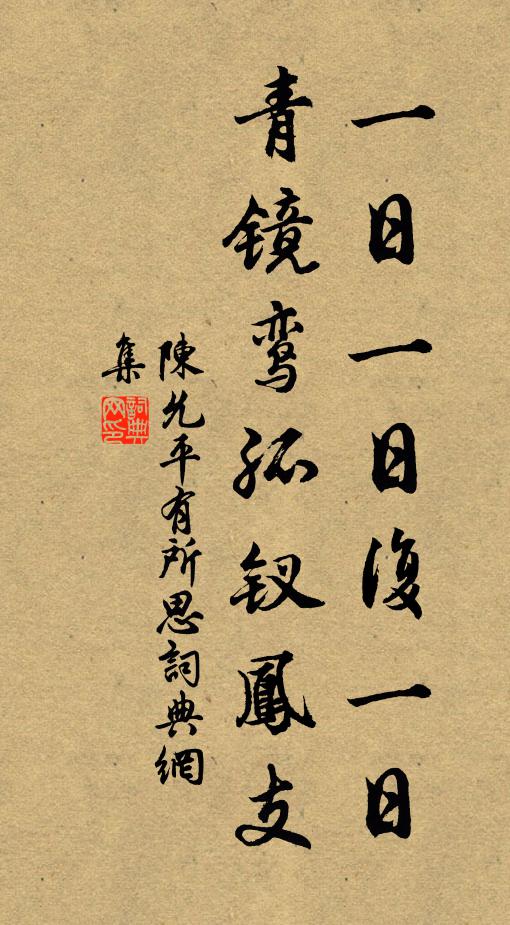 一日一日復一日
青镜鸾孤钗鳳支
陳允平有所思詞典網
集
詞典网印